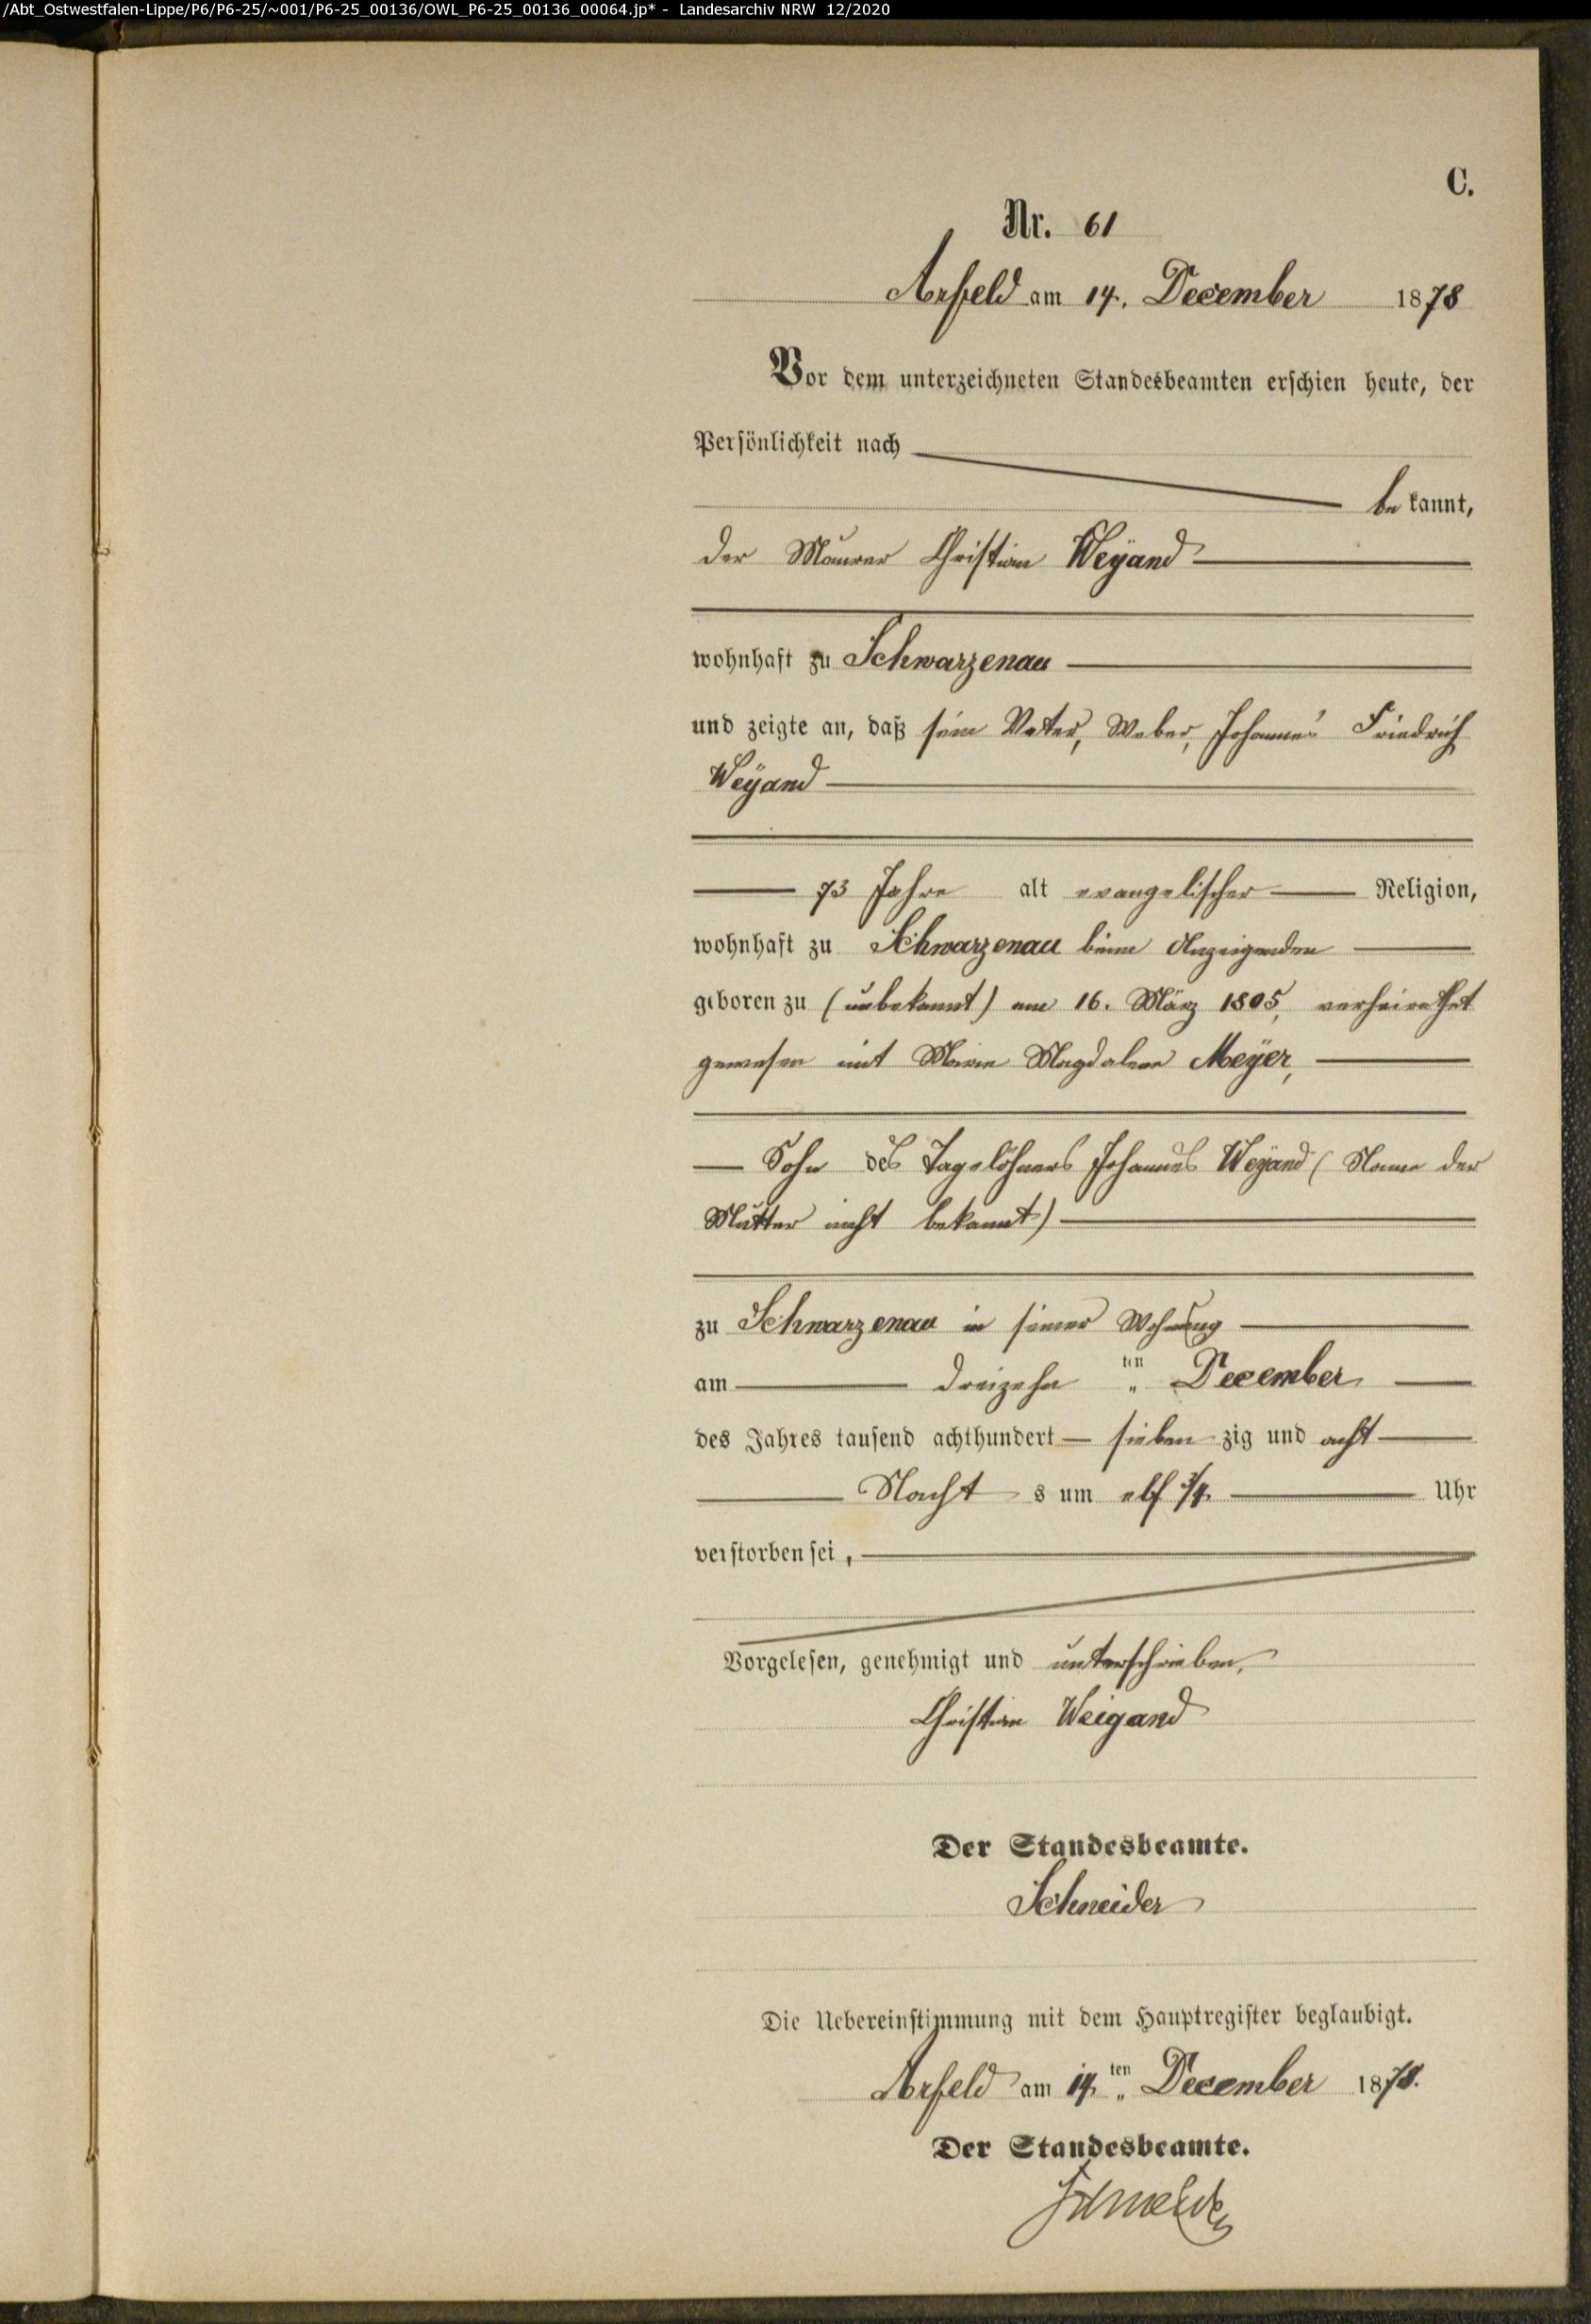 /Abt_Ostwestfalen-Lippe/P6/P6-25/~001/P6-25_00136/OWL_P6-25_00136_00064.jp* - Landesarchiv NRW 12/2020
C.
Nr. 61
Arfeld am 14. December 1878
Vor dem unterzeichneten Standesbeamten erschien heute, der
Persönlichkeit nach
bekannt,
der Maurer Christian Weÿand
wohnhaft zu Schwarzenau
und zeigte an, daß sein Vater, Weber, Johannes Friedrich
Weÿand
73 Jahre alt evangelischer Religion,
wohnhaft zu Schwarzenau beim Anzeigenden
geboren zu (unbekannt) am 16. März 1805, verheirathet
gewesen mit Marie Magdalene Meÿer,
Sohn des Tagelöhners Johannes Weÿand (Name der
Mutter nicht bekannt)
zu Schwarzenau in seiner Wohnung
am dreizehn ten December
des Jahres tausend achthundert siebenzig und acht
Nachts um elf 3/4 Uhr
verstorben sei,
Vorgelesen, genehmigt und unterschrieben,
Christian Weigand
Der Standesbeamte.
Schneider
Die Uebereinstimmung mit dem Hauptregister beglaubigt.
Arfeld am 14. ten December 1878.
Der Standesbeamte.
Schneider